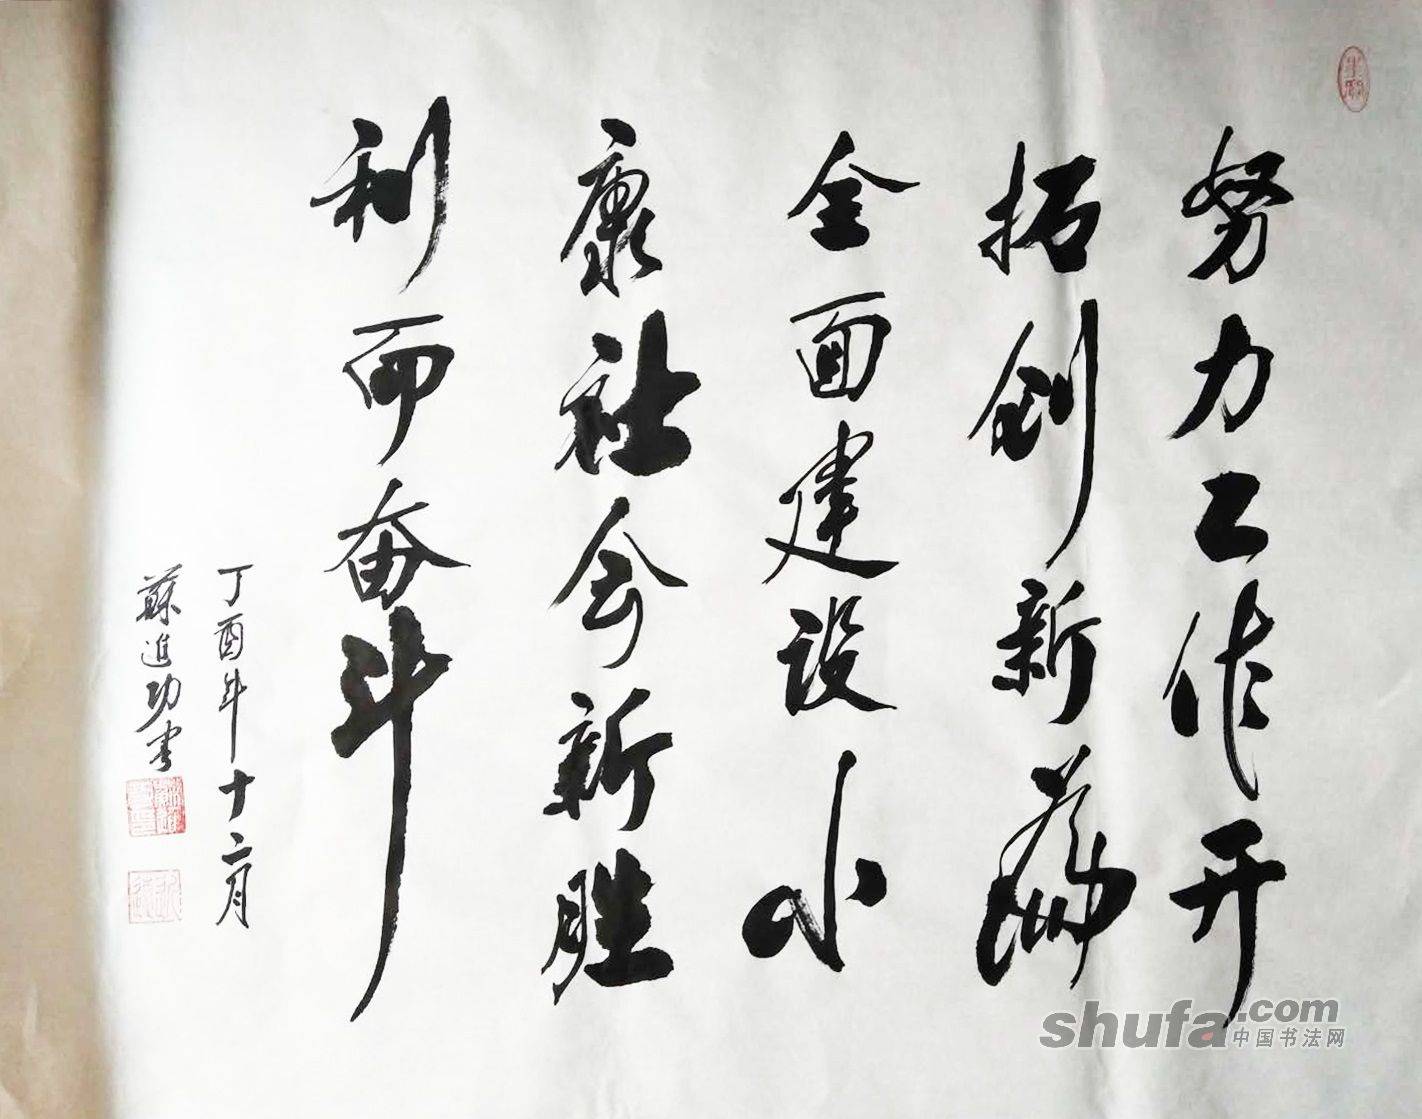 努力工作开
拓创新為
全面建设小
康社会新胜
利而奋斗
丁酉年十二月
蘇進功書
shufa.com
中国书法网